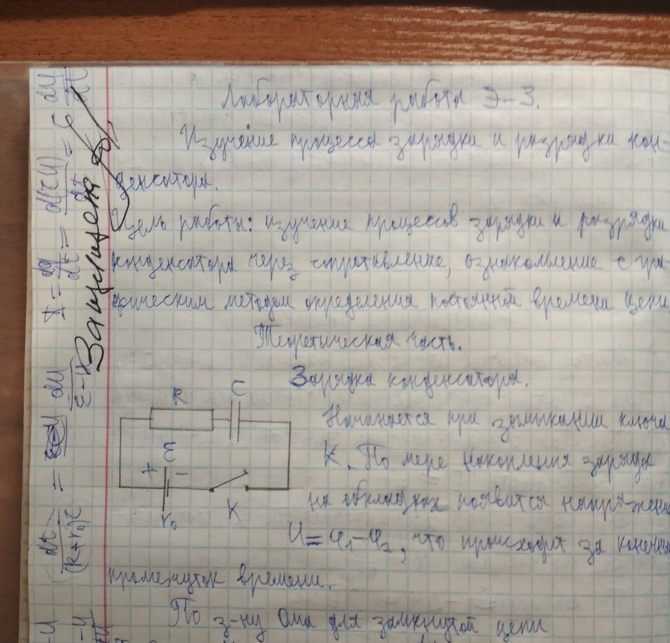 Лабораторная работа Э-3.
Изучение процесса зарядки и разрядки кон-
денсатора.
Цель работы: изучение процессов зарядки и разрядки
конденсатора через сопротивление, ознакомление с гра-
фическим методом определения постоянной времени цепи
Теоретическая часть.
Зарядка конденсатора.
R C
Начинается при замыкании ключа
ε
К. По мере накопления заряда
+ −
на обкладках появится напряжение
r₀ K
U = φ₁-φ₂, что происходит за конечн
промежуток времени.
По з-ну Ома для замкнутой цепи
Защищена
I = dq/dt = d(CU)/dt = C dU/dt
dt/((R+r₀)C) = dU/(ε-U)